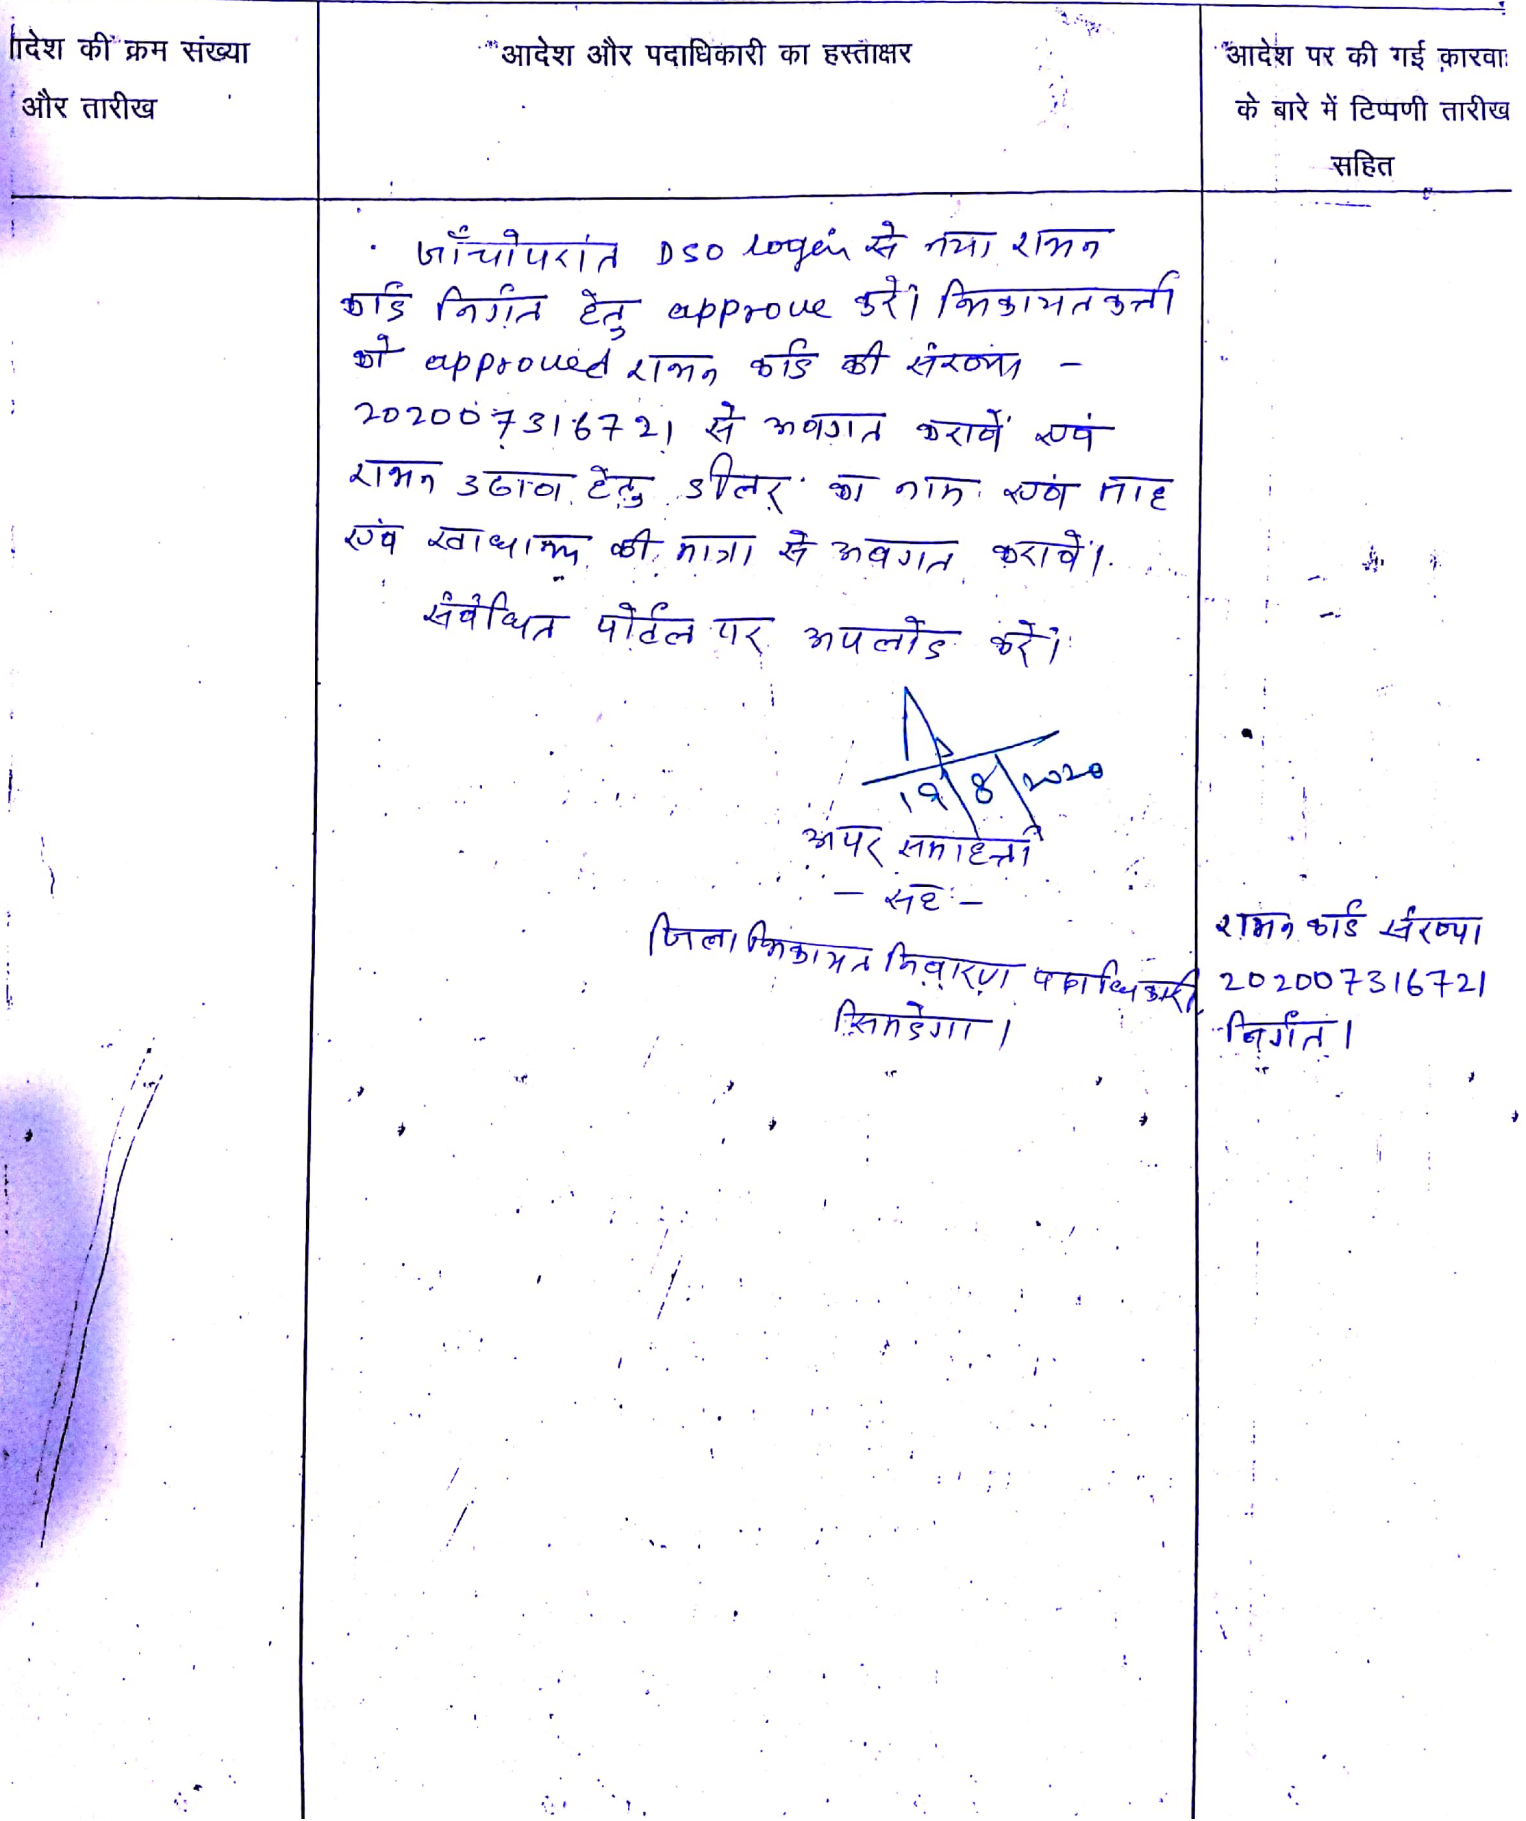 ादेश की क्रम संख्या
और तारीख
आदेश और पदाधिकारी का हस्ताक्षर
आदेश पर की गई कारवा
के बारे में टिप्पणी तारीख
सहित
जाँचोपरांत DSO login से नया राशन
कार्ड निर्गत हेतु approve करें। शिकायतकर्त्ता
को approved राशन कार्ड की संख्या -
202007316721 से अवगत करावें एवं
राशन उठाव हेतु डीलर का नाम एवं माह
एवं खाधान्न की मात्रा से अवगत करावें।
संबंधित पोर्टल पर अपलोड करें।
19/8/2020
अपर समाहर्त्ता
- सह -
जिला शिकायत निवारण पदाधिकारी,
सिमडेगा।
राशन कार्ड संख्या
202007316721
निर्गत।